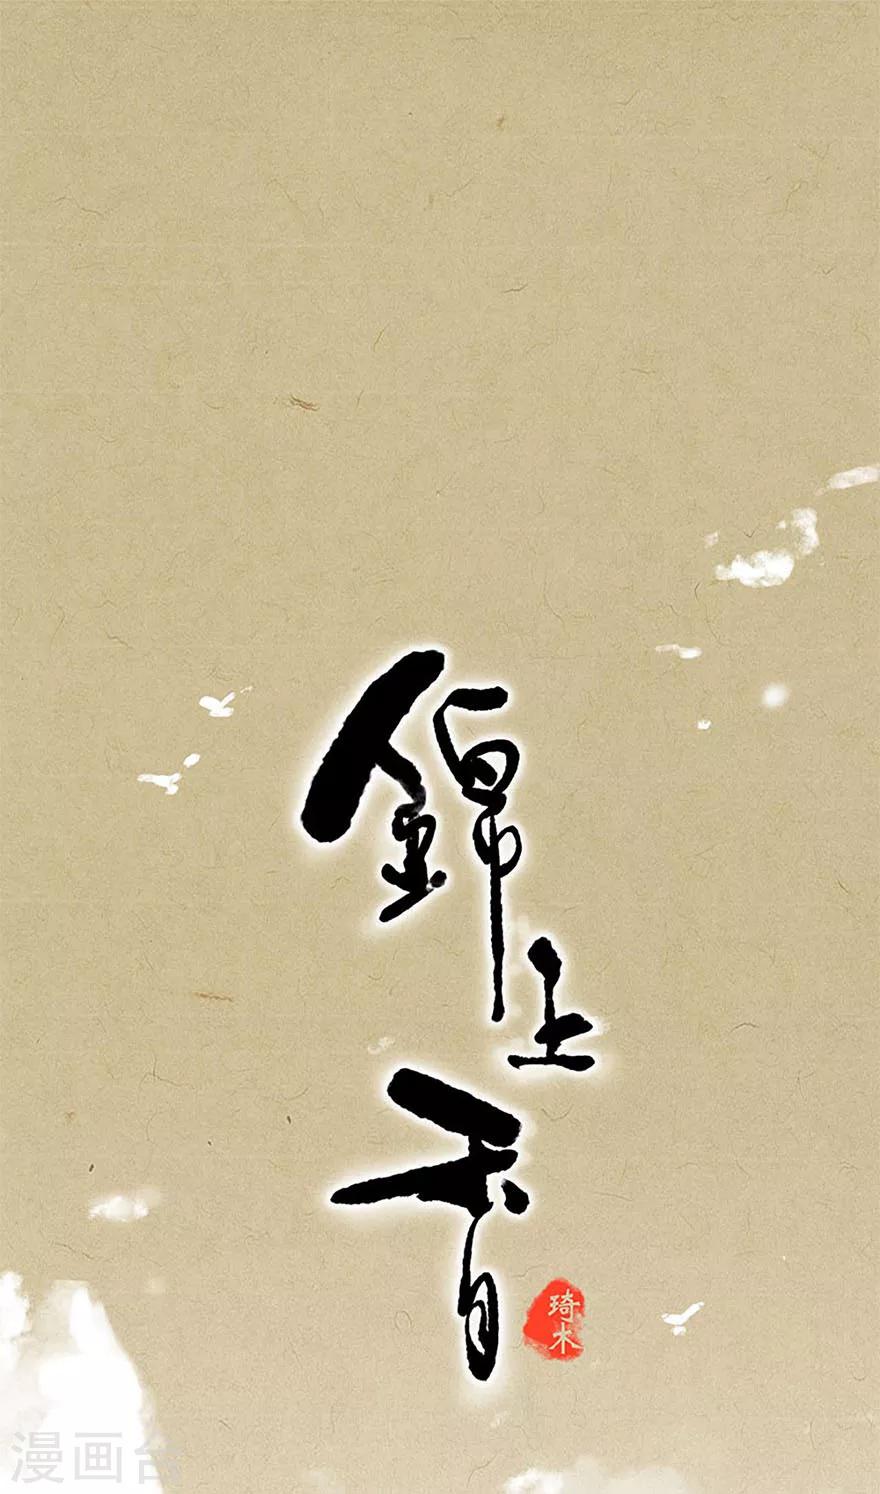 錦上香
琦木
漫画台